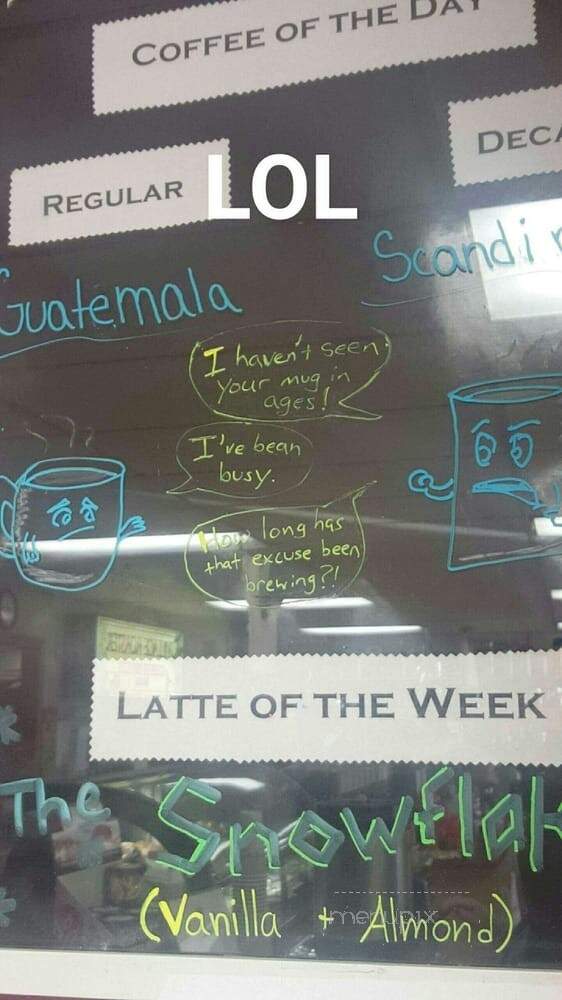 COFFEE OF THE DAY
REGULAR
DECA
LOL
Guatemala
Scandi
I haven't seen
your mug in
ages!
I've bean
busy.
How long has
that excuse been
brewing?!
LATTE OF THE WEEK
The Snowflak
(Vanilla + Almond)
menupix